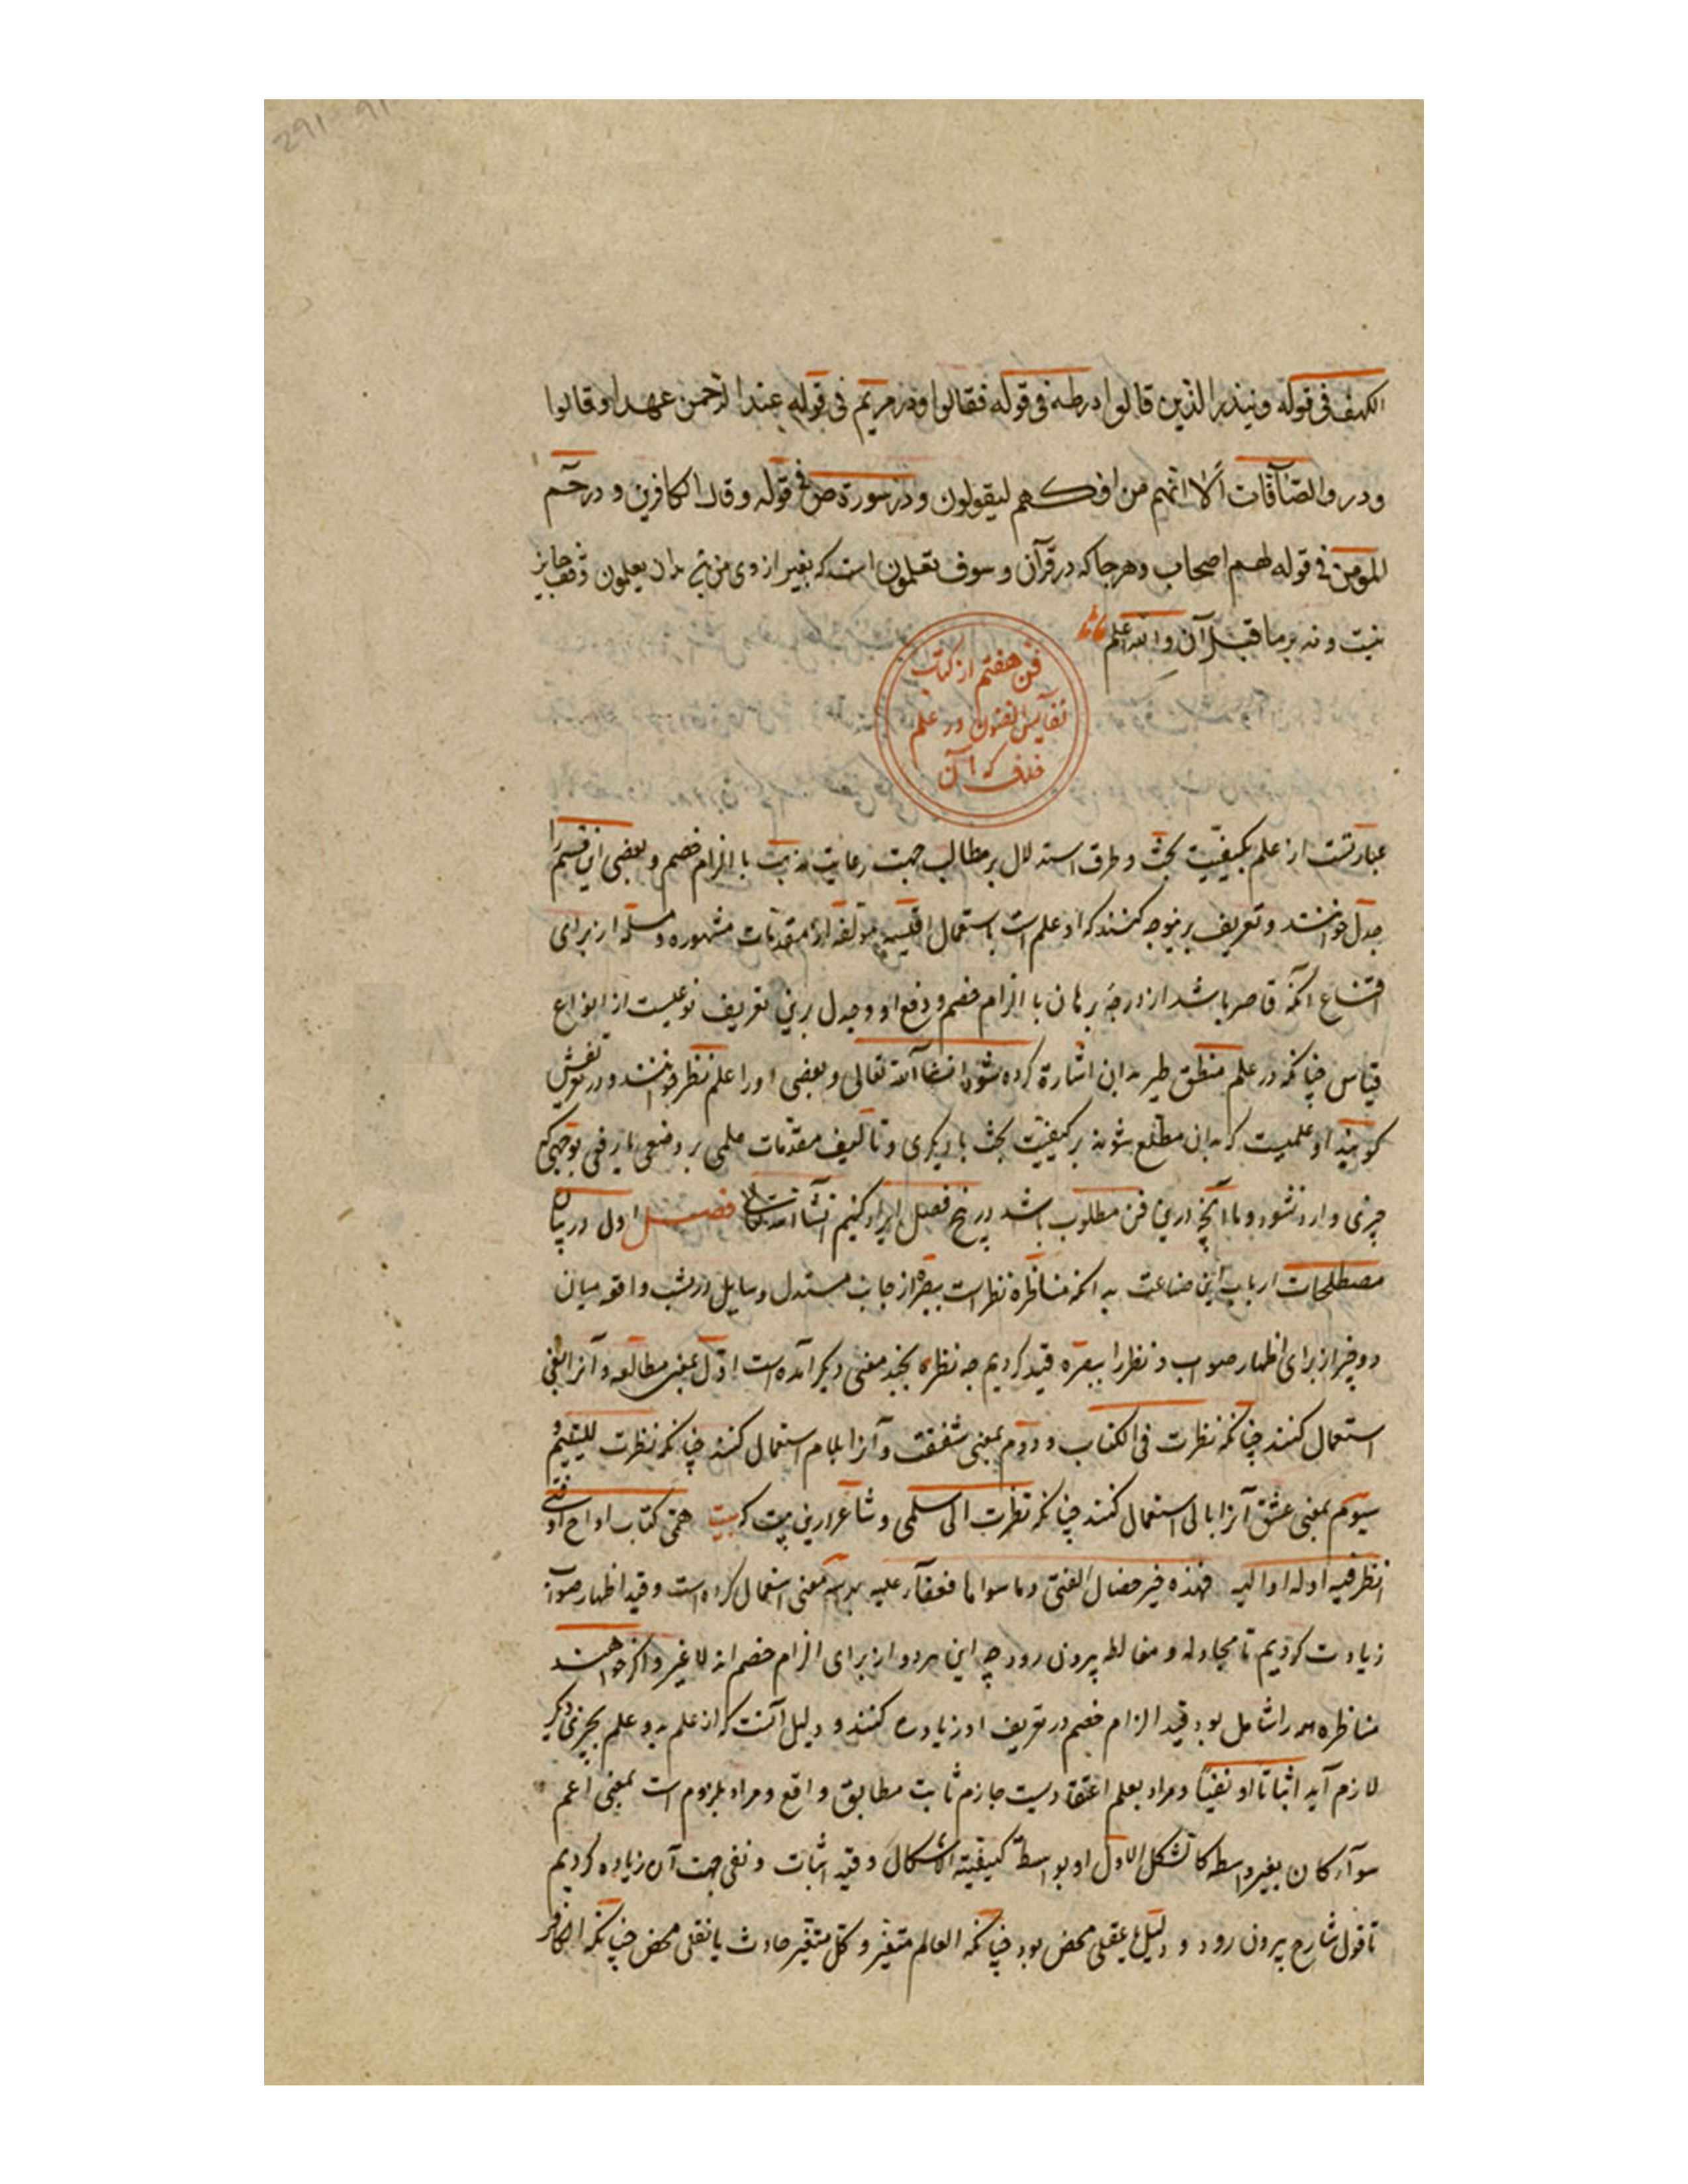 الکهف فی قوله وینذر الذین قالوا ودر طه فی قوله فقالوا ودر مریم فی قوله عند الرحمن عهدا وقالوا
ودر والصآفات ألا انهم من افکهم لیقولون ودر سورة ص فی قوله وقال الکافرین و در حم
المومن فی قوله لهم اصحاب وهرجا که در قرآن و سوف تعلمون است که بغیر از وی بدان یعلمون وقف جایز
نیست و نه بر ما قبل آن والله اعلم
فن هفتم از کتاب
نفایس الفنون در علم
خلاف که آن
عبارتست از علم بکیفیت بحث و طرق استدلال بر مطالب جهت رعایت مذهب با الزام خصم و بعضی این قسم را
جدل خوانند و تعریف برینوجه کنند که او علم است باستعمال اقیسه مؤلفه از مقدمات مشهوره و مسلّمه از برای
اقناع آنکه قاصر باشد از درجهٔ برهان با الزام خصم و دفع او و جدل برین تعریف نوعیست از انواع
قیاس چنانکه در علم منطق بدان اشارة کرده شود انشاآلله تعالی و بعضی او را علم نظر خوانند و در تعریفش
کویند او علمیست که بدان مطلع شوند بر کیفیت بحث با دیکری و تألیف مقدمات علمی بر وضعی یا رفعی بوجهی که
چیزی وارد نشود و ما آنچه درین فن مطلوب باشد در پنج فصل ایراد کنیم انشاآلله تعالی فصل اول در بیان
مصطلحات ارباب این صناعت بدانکه مناظره نظرست ببصیرة از جانب مستدل و سایل در نسبت واقعه میان
دو چیز از برای اظهار صواب و نظر را ببصیرة قید کردیم چه نظر بچند معنی دیکر آمده است اول بمعنی مطالعه و آنرا بفی
استعمال کنند چنانکه نظرت فی الکتاب و دوم بمعنی شفقت و آنرا بلام استعمال کنند چنانکه نظرت للیتیم و
سیوم بمعنی عشق آنرا بالی استعمال کنند چنانکه نظرت الی سلمی و شاعر درین بیت که بیت
انظر فیه او له او الیه فهذه خیر خصال الفتی وما سواها علیه بهر سه معنی استعمال کرده است و قید اظهار صواب
زیادت کردیم تا مجادله و مغالطه بیرون رود چه این هر دو از برای الزام خصم‌اند لا غیر و اکر خواهند
مناظره همه را شامل بود قید الزام خصم در تعریف او زیاده کنند و دلیل آنست که از علم بدو علم بچیزی دیکر
لازم آید اثباتا او نفیا و مراد بعلم اعتقادیست جازم ثابت مطابق واقع و مراد بلزوم است بمعنی اعم
سوآء کان بغیر واسطه کالشکل الاول او بواسطة کبقیة الاشکال و قید اثبات و نفی جهت آن زیاده کردیم
تا قول شارح بیرون رود و دلیل یا عقلی محض بود چنانکه العالم متغیر و کل متغیر حادث یا نقلی محض چنانکه